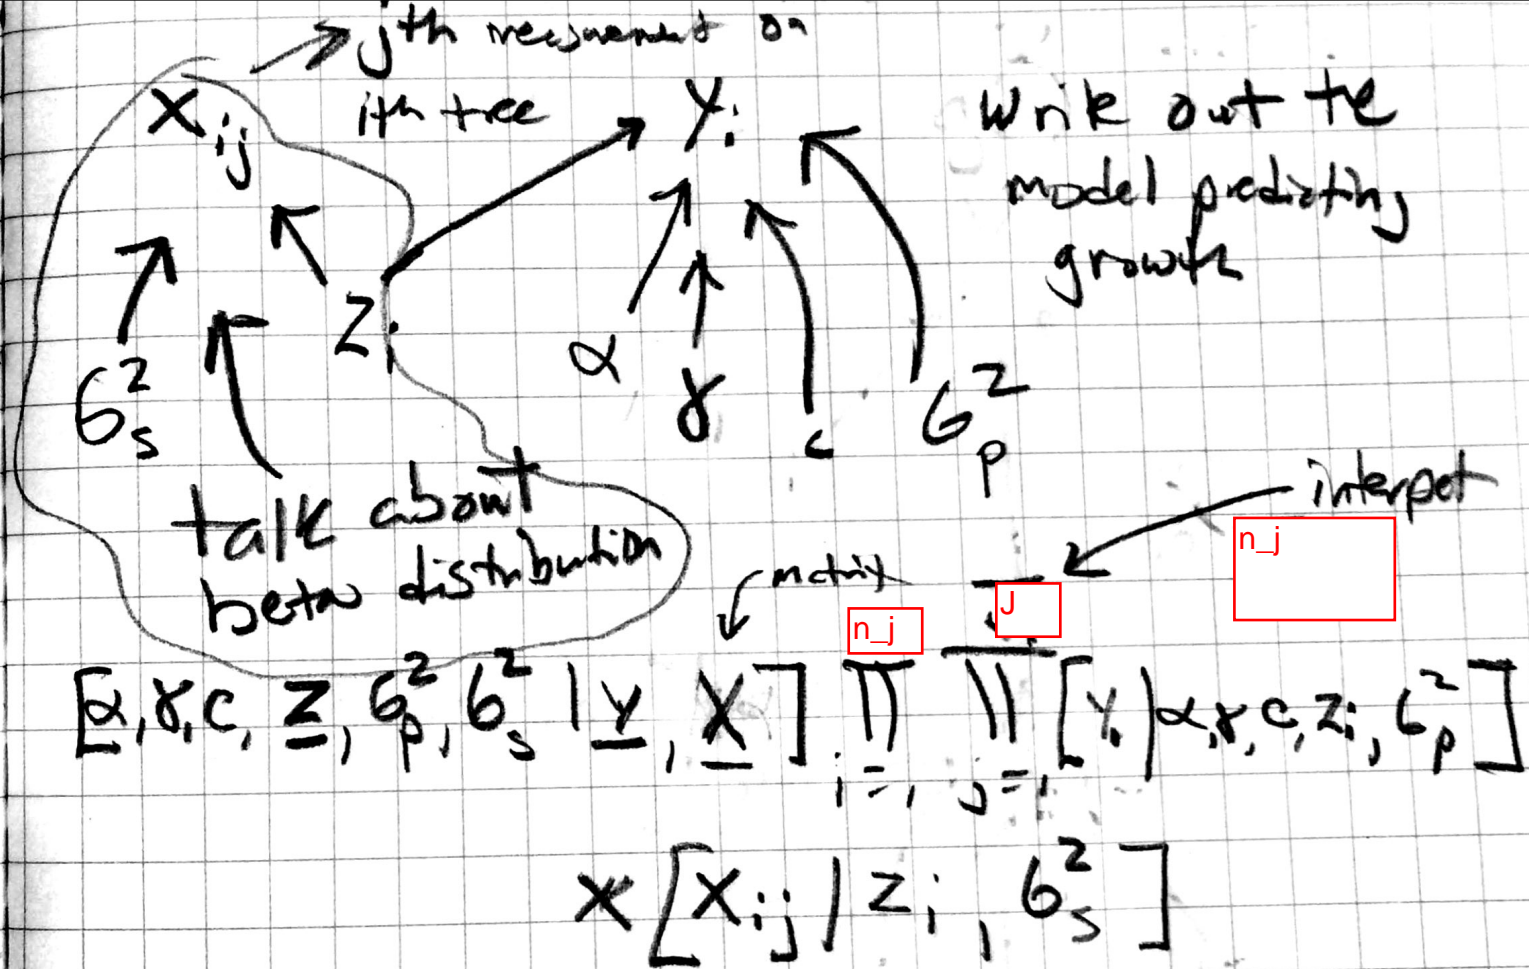 jth measurement on
ith tree
X_ij
y_i
Write out the
model predicting
growth
z_i
σ²_s
α
γ
c
σ²_p
talk about
beta distribution
matrix
interpet
n_j
n_j
J
[α, γ, c, z, σ²_p, σ²_s | y, X] ∏ i=1 ∏ j=1 [y_i | α, γ, c, z_i, σ²_p]
x [X_ij | z_i, σ²_s]